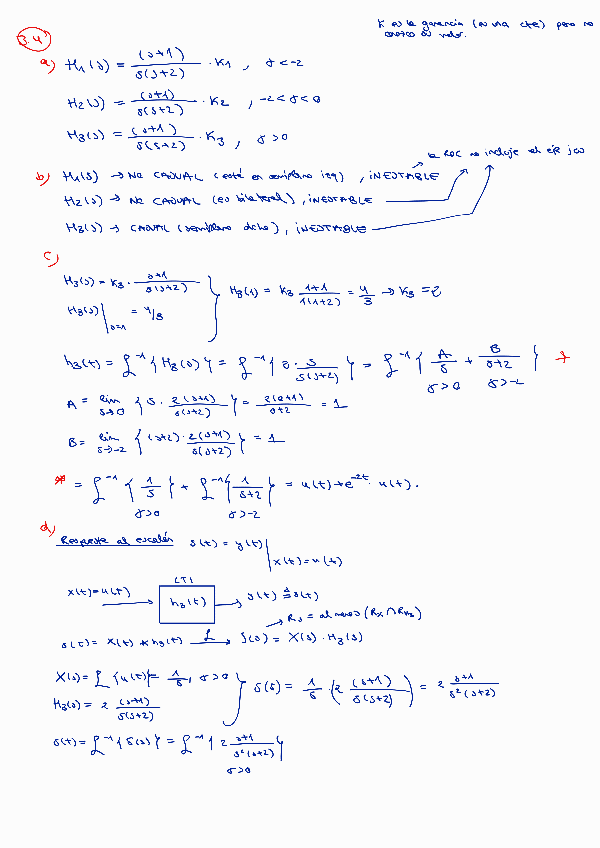 K es la ganancia (es una cte) pero no
conozco su valor.
3.4
a) H₁(s) = (s+1) / s(s+2) · K₁ , σ < -2
H₂(s) = (s+1) / s(s+2) · K₂ , -2 < σ < 0
H₃(s) = (s+1) / s(s+2) · K₃ , σ > 0
la ROC no incluye el eje jω
b) H₁(s) → NO CAUSAL (está en semiplano izq) , INESTABLE
H₂(s) → NO CAUSAL (es bilateral) , INESTABLE
H₃(s) → CAUSAL (semiplano dcho) , INESTABLE
c)
H₃(s) = K₃ · s+1 / s(s+2)
H₃(s)|s=1 = 4/3
H₃(1) = K₃ 1+1 / 1(1+2) = 4/3 → K₃ = 2
h₃(t) = ℒ⁻¹{H₃(s)} = ℒ⁻¹{ · s / s(s+2)} = ℒ⁻¹{A/s + B/s+2} *
σ>0 σ>-2
A = lim s→0 {s · 2(s+1) / s(s+2)} = 2(0+1) / 0+2 = 1
B = lim s→-2 {(s+2) · 2(s+1) / s(s+2)} = 1
* = ℒ⁻¹{1/s} + ℒ⁻¹{1/s+2} = u(t) + e^-2t · u(t).
σ>0 σ>-2
d)
Respuesta al escalón s(t) = y(t)|x(t)=u(t)
LTI
x(t)=u(t) → h₃(t) → y(t) ≜ s(t)
Rs = al menos (Rx ∩ RH₃)
s(t) = x(t) * h₃(t) ℒ→ S(s) = X(s) · H₃(s)
X(s) = ℒ{u(t)} = 1/s , σ>0
H₃(s) = 2 (s+1) / s(s+2)
S(s) = 1/s · (2 (s+1) / s(s+2)) = 2 s+1 / s²(s+2)
s(t) = ℒ⁻¹{S(s)} = ℒ⁻¹{2 s+1 / s²(s+2)}
σ>0